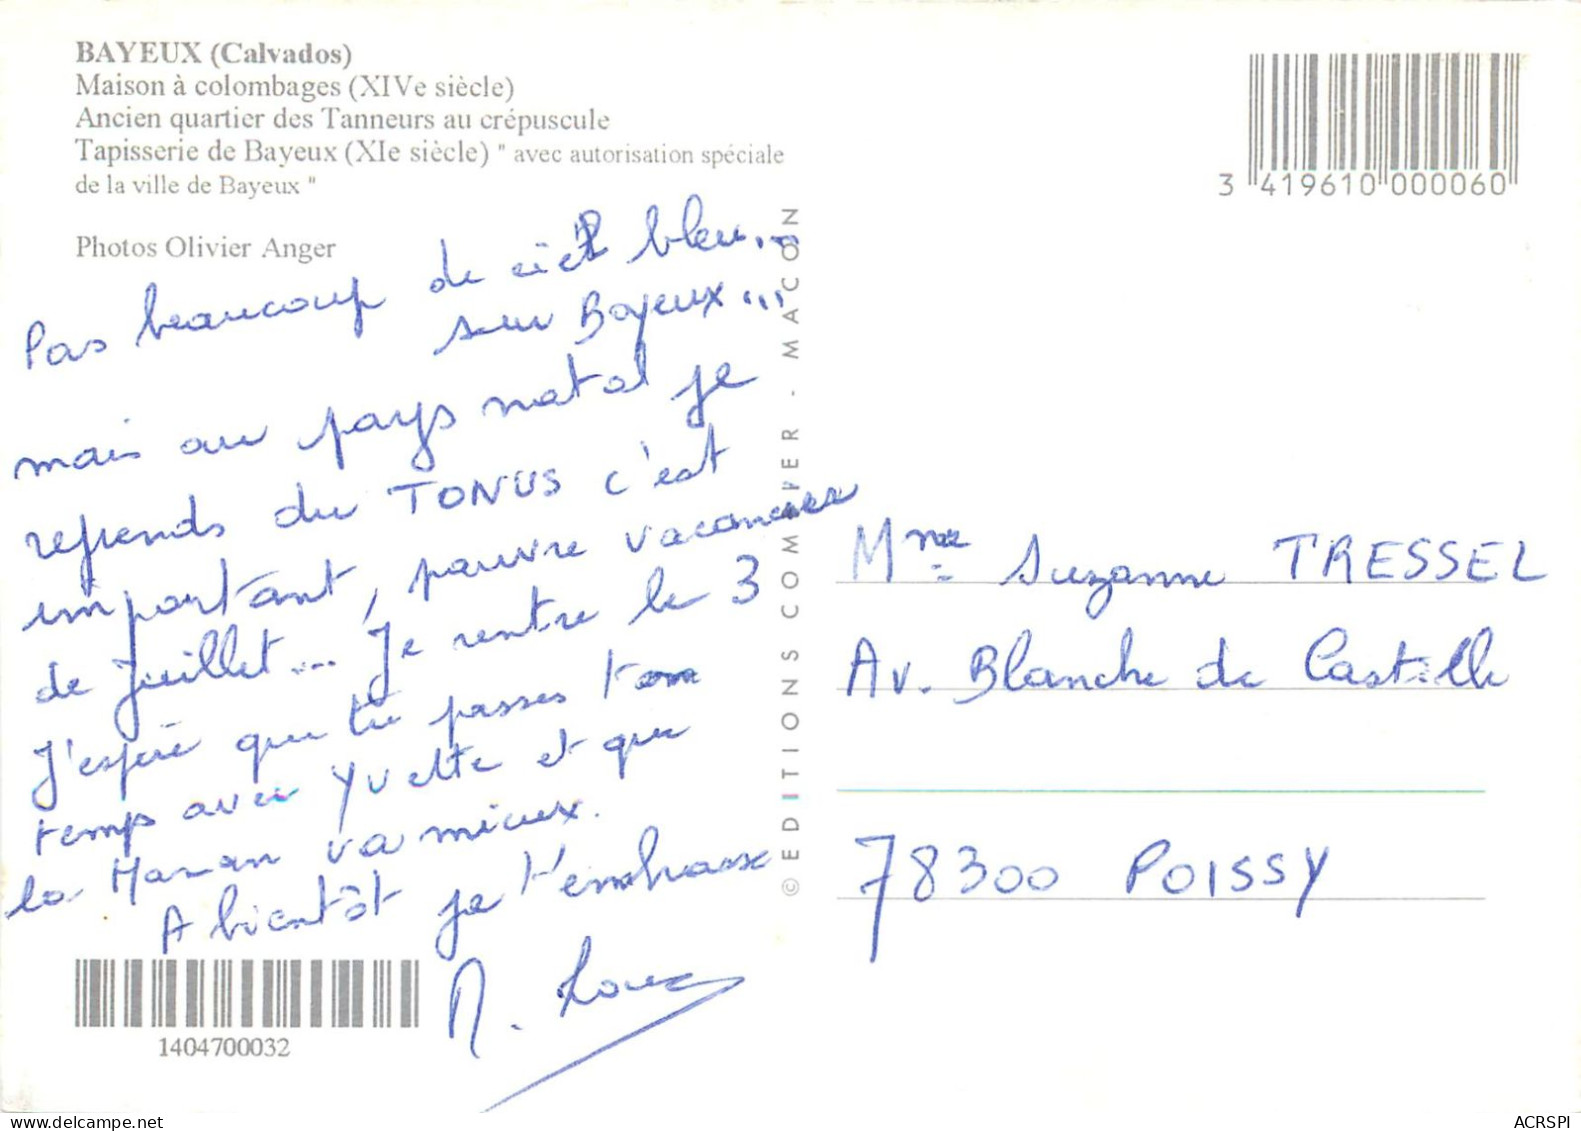 BAYEUX (Calvados)
Maison à colombages (XIVe siècle)
Ancien quartier des Tanneurs au crépuscule
Tapisserie de Bayeux (XIe siècle) " avec autorisation spéciale
de la ville de Bayeux "
Photos Olivier Anger
3 419610 000060
Pas beaucoup de ciel bleu...
sur Bayeux...
mais au pays natal je
reprends du TONUS c'est
important, pauvre vacances
de Juillet... Je rentre le 3
J'espère que tu passes ton
temps avec Yvette et que
la Maman va mieux.
A bientôt je t'embrasse
1404700032
© EDITIONS COMBIER - MACON
Mme Suzanne TRESSEL
Av. Blanche de Castille
78300 POISSY
ACRSPI